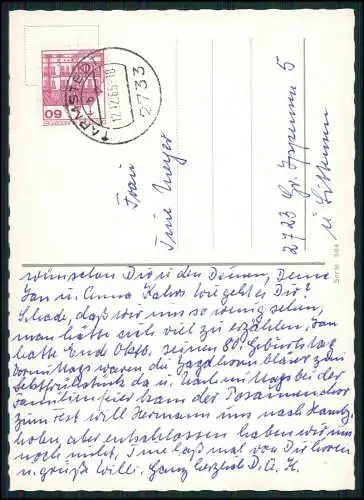 60
TARMSTEDT
12.12.85-10
2733
Frau
Tine Meyer
2723 Gr. Ippensen 5
ü Sittensen
wünschen Dir u den Deinen, Deine
Jan u. Anna Kahrs. Wie geht es Dir?
Schade, daß wir uns so wenig sehen,
man hätte sich viel zu erzählen, Jan
hatte Ende Oktb. seinen 80. Geburtstag
Vormittags waren die Jagdhornbläser zum
Sektfrühstück da u. Nachmittags bei der
Familienfeier kam der Posaunenchor
zum Fest will Hermann uns nach
holen, aber entschlossen haben wir uns
noch nicht, Tine laß mal von Dir hören
u. grüße Willi. Ganz herzlich D. A. K.